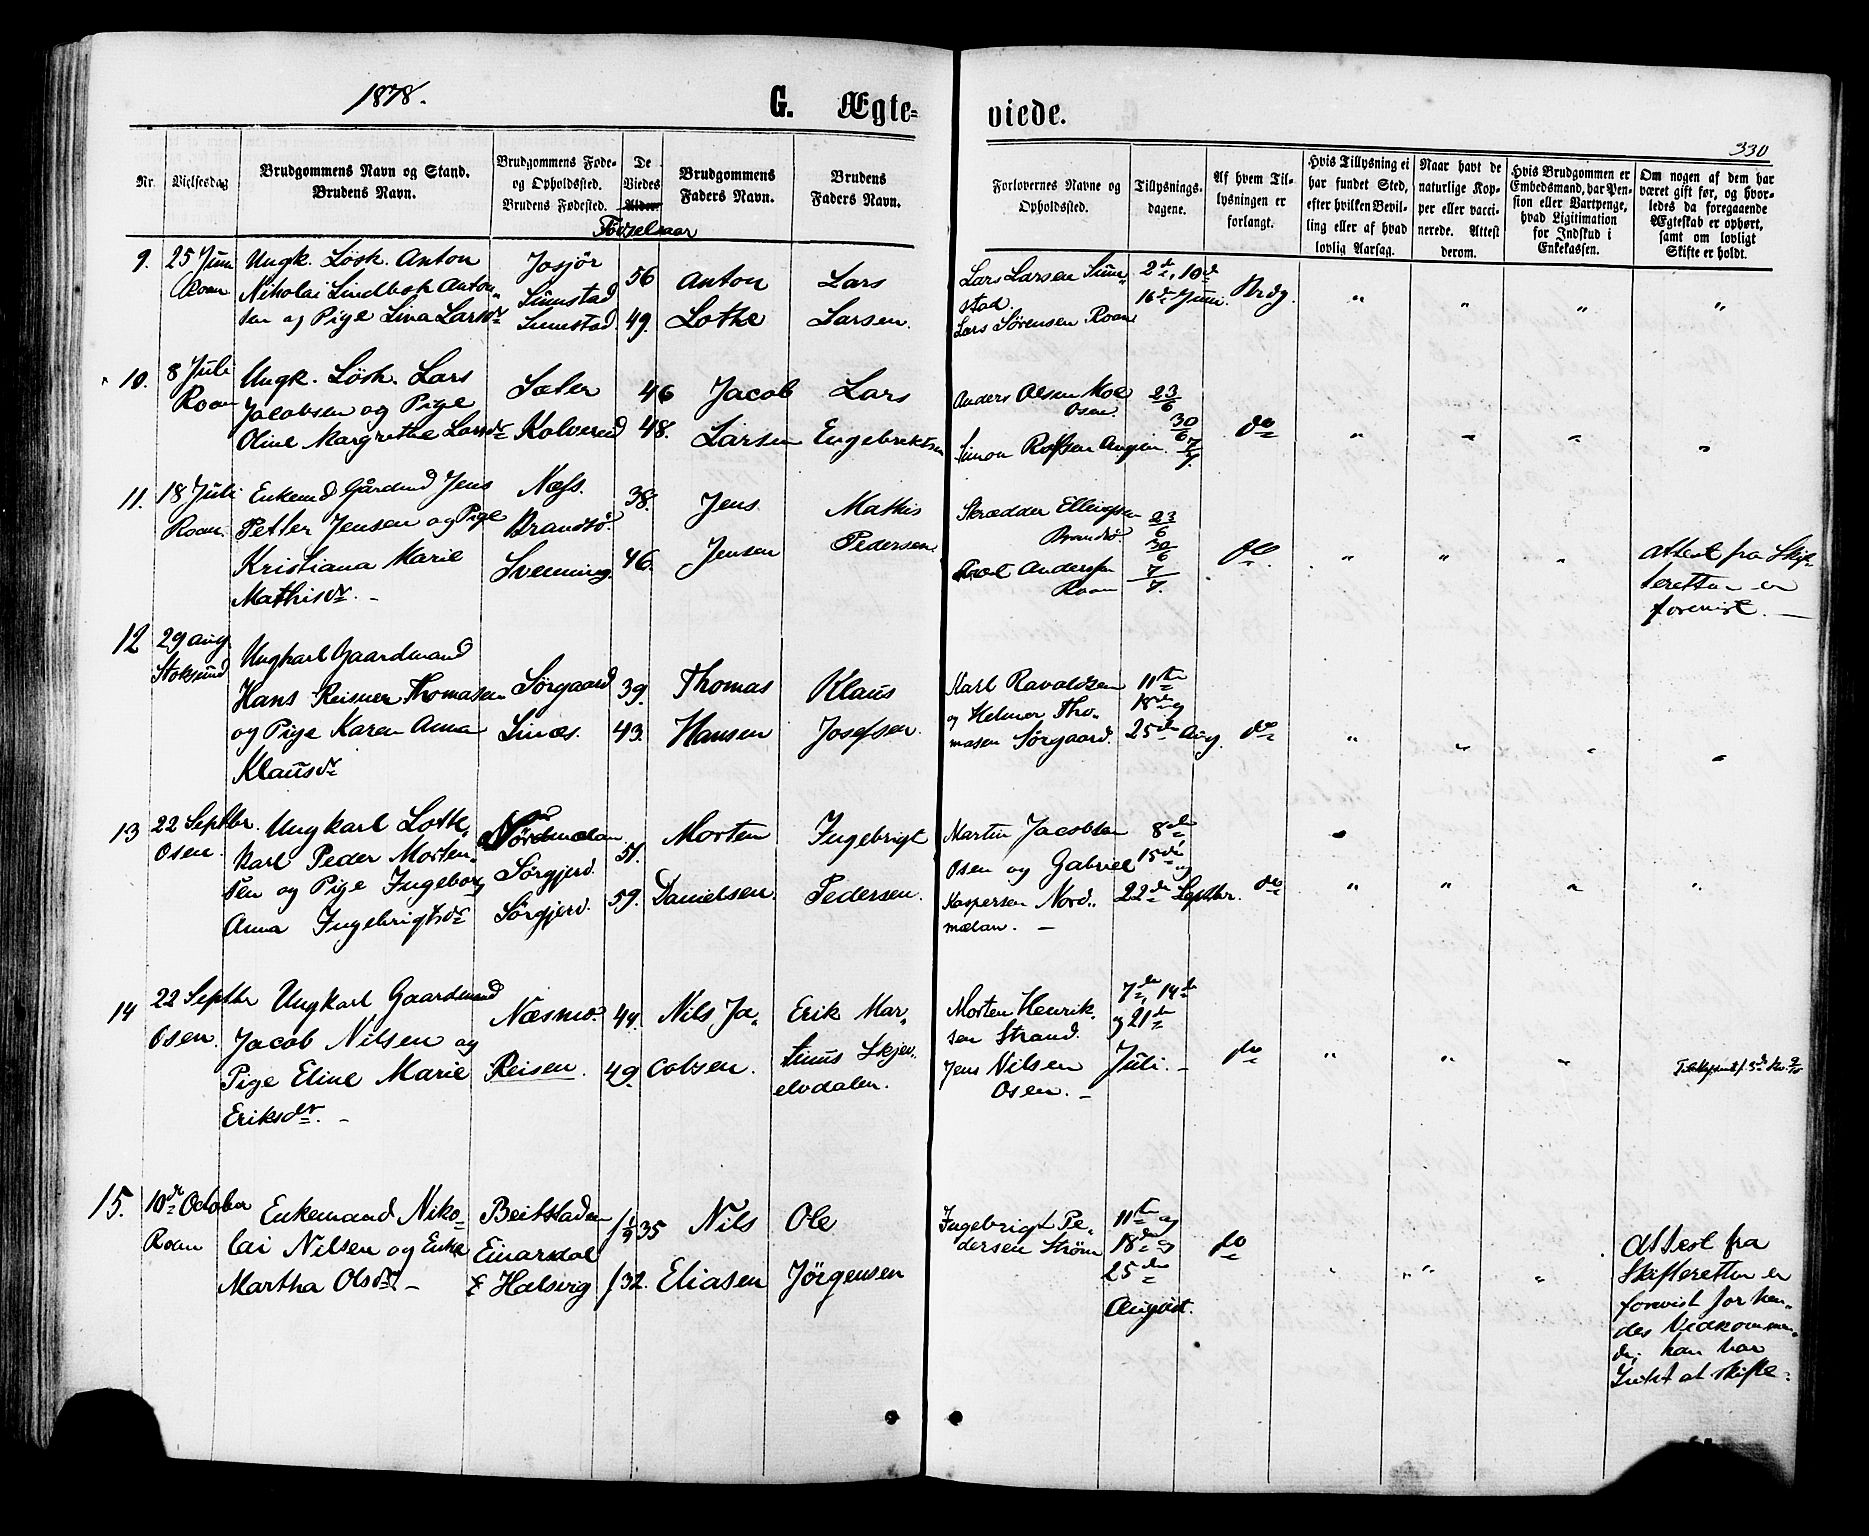 1878.
G. Ægte-
viede.
330
Nr.
Vielsesdag
Brudgommens Navn og Stand.
Brudens Navn.
Brudgommens Føde-
og Opholdssted.
Brudens Fødested.
De
Viedes
Alder.
Fødselsaar
Brudgommens
Faders Navn.
Brudens
Faders Navn.
Forlovernes Navne og
Opholdssted.
Tillysnings-
dagene.
Af hvem Til-
lysningen er
forlangt.
Hvis Tillysning ei
har fundet Sted,
efter hvilken Bevil-
ling eller af hvad
lovlig Aarsag.
Naar havt de
naturlige Kop-
per eller vacci-
nerede. Attest
derom.
Hvis Brudgommen er
Embedsmand, har Pen-
sion eller Vartpenge,
hvad Legitimation
for Indskud i
Enkekassen.
Om nogen af dem har
været gift før, og hvor-
ledes da foregaaende
Ægteskab er ophørt,
samt om lovligt
Skifte er holdt.
9.
25 Juni
Roan
Ungk. Løsk. Anton
Nikolai Lindbok Anton-
sen og Pige Lina Larsdr
Josjør
Sumstad
Sumstad.
56
49.
Anton
Lothe
Lars
Larsen.
Lars Larsen Sum-
stad
Lars Sørensen Roan
2de, 10de
16de Juni.
Brdg.
" " " "
10.
8 Juli
Roan
Ungk. Løsk. Lars
Jacobsen og Pige
Oline Margrethe Larsdr
Sæter
Kolvereid
46
48.
Jacob
Larsen
Lars
Engebriktsen
Anders Olsen Moe
Osen.
Simon
23/6
30/6
7/7.
do
" " " "
11.
18 Juli
Roan.
Enkemd Gårdmd Jens
Petter Jensen og Pige
Kristiana Marie
Mathisdr. -
Næss.
Brandsø.
Svenning.
38.
46.
Jens
Jensen
Mathis
Pedersen.
Skrædder Ellingsen
Brandsø
Anderssen
Roan
23/6
30/6
7/7.
do.
" " "
Attest fra Skif-
teretten er
forevist. -
12
29 aug.
Stoksund
Ungkarl Gaardmand
Hans Reisner Thomasen
og Pige Karen Anna
Klausdr
Sørgaard
Linæs.
39.
43.
Thomas
Hansen
Klaus
Josefsen.
Karl Ravaldsen
og Helmer Tho-
masen Sørgaard.
11te
18de og
25de Aug.
do
" " " "
13
22 Septbr.
Osen.
Ungkarl Loth.
karl Peder Morten-
sen og Pige Ingeborg
Anna Ingebrigtsdr
Nordmælan
Sørgjerd.
Sørgjerd.
51.
59.
Morten
Danielsen.
Ingebrigt
Pedersen.
Martin Jacobsen
Osen og Gabriel
Kaspersen Nord-
mælan. -
8de
15de og
22de Septbr.
do
" " " "
14
22 Septbr
Osen.
Ungkarl Gaardmand
Jacob Nilsen og
Pige Eline Marie
Eriksdr. -
Næsmo.
Reisen.
44.
49.
Nils Ja-
cobsen.
Erik Mar-
tinus Skjer-
elvdalen.
Morten Henrik-
sen Strand.
Jens Nilsen
Osen. -
7de, 14de
og 21de
Juli. -
do
" " "
15.
10de October
Roan
Enkemand Niko-
lai Nilsen og Enke
Martha Olsdr -
Beitstaden
Einarsdal
& Halsvig
35
/32.
Nils
Eliasen
Ole
Jørgensen
Ingebrigt Pe-
dersen Strøm
11te og
18de og
25de
August.
do
" " "
Attest fra
Skifteretten er
forevist for hen-
des Vedkommen-
de; han har
Intet at skifte.